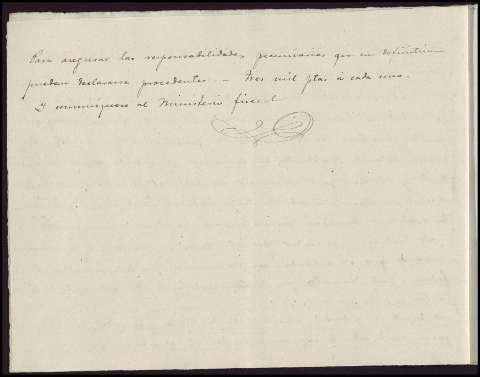 Para asegurar las responsabilidades pecuniarias que en definitiva
puedan declararse procedentes. — tres mil ptas á cada uno.
Y comuníquese al Ministerio fiscal